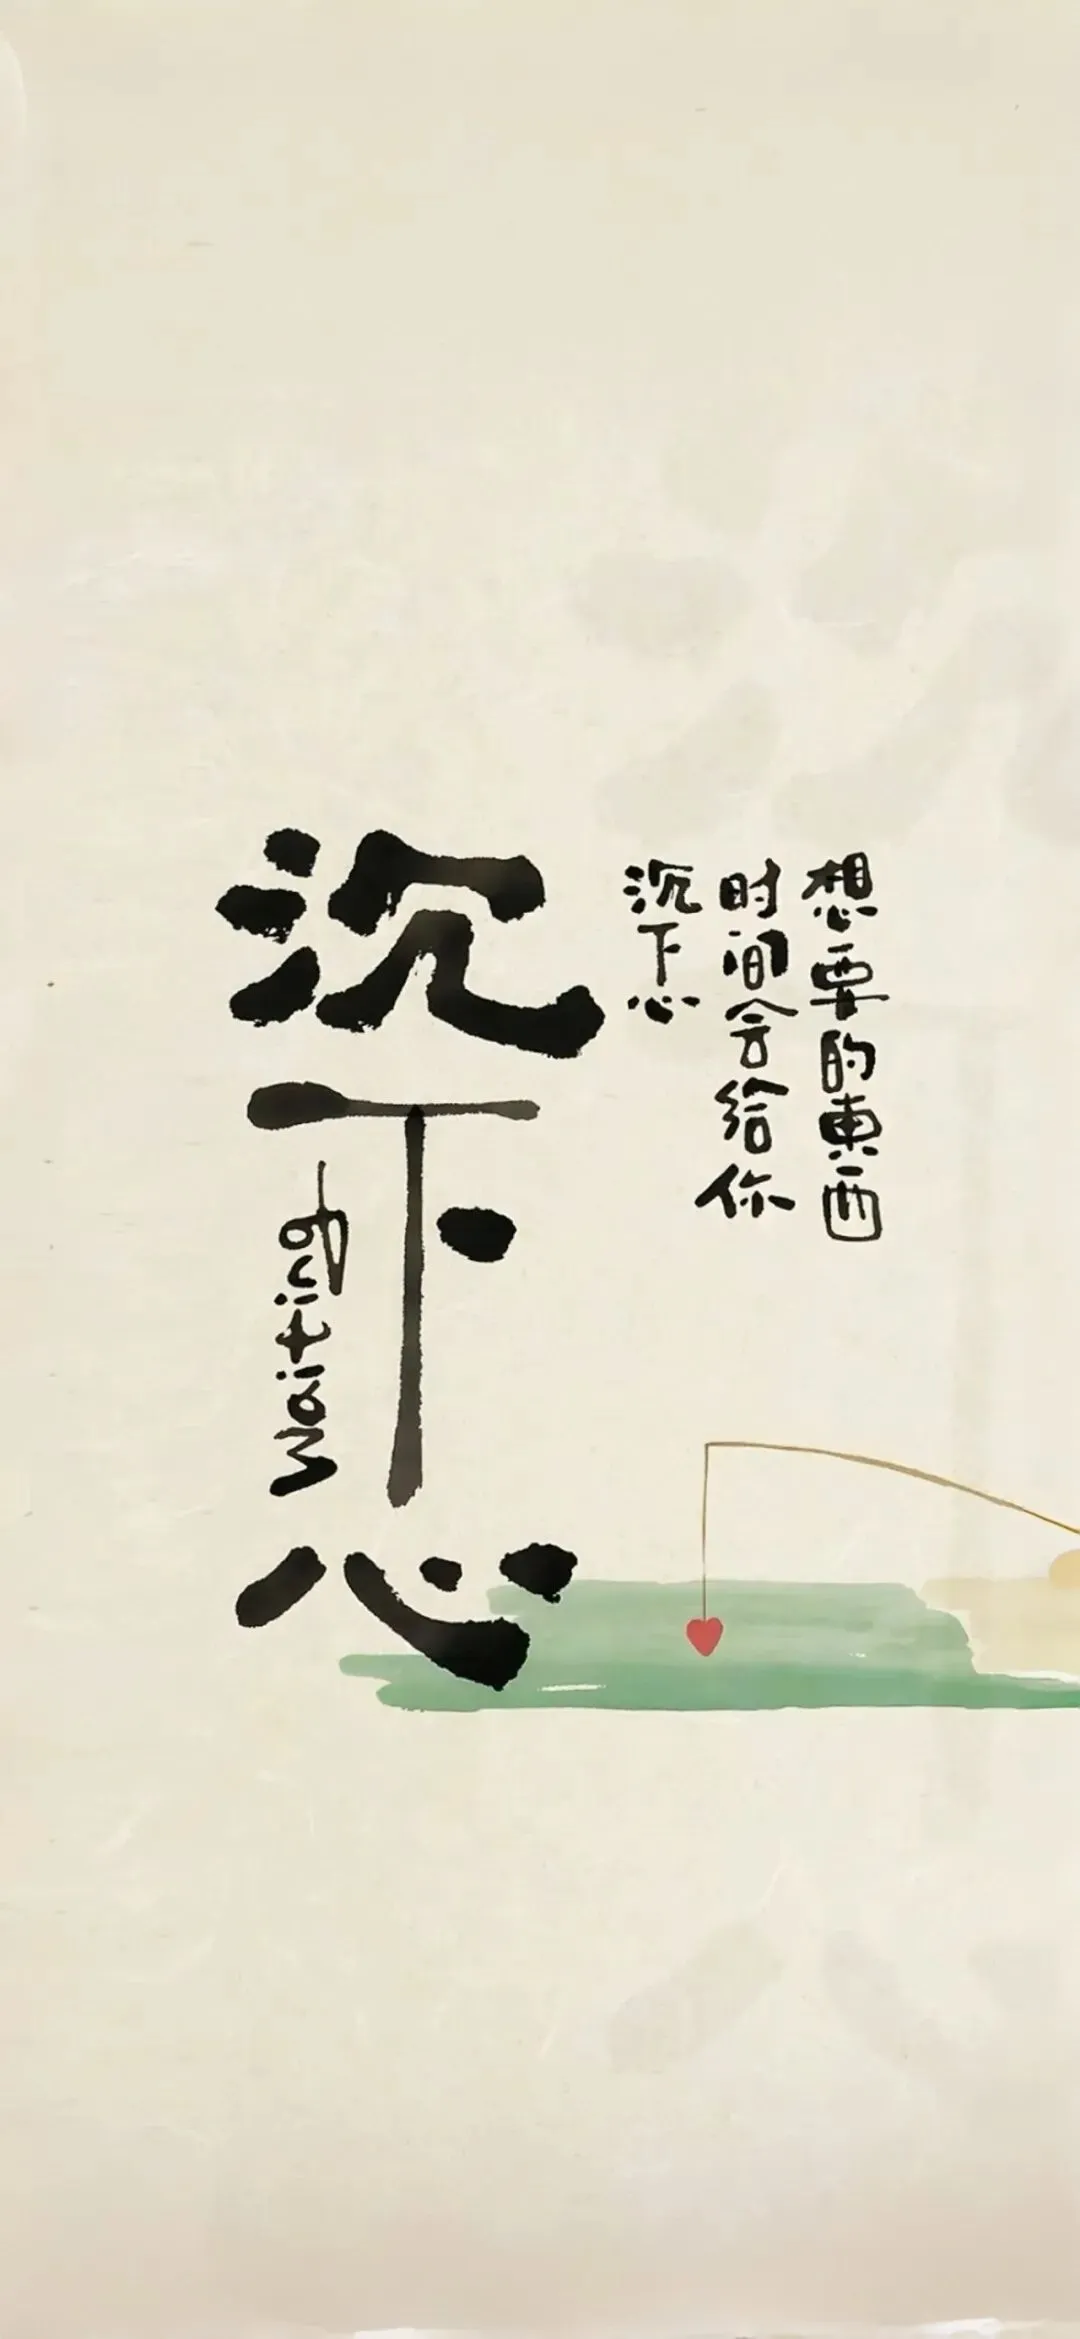 想要的東西
时间会给你
沉下心
沉下心
waiting